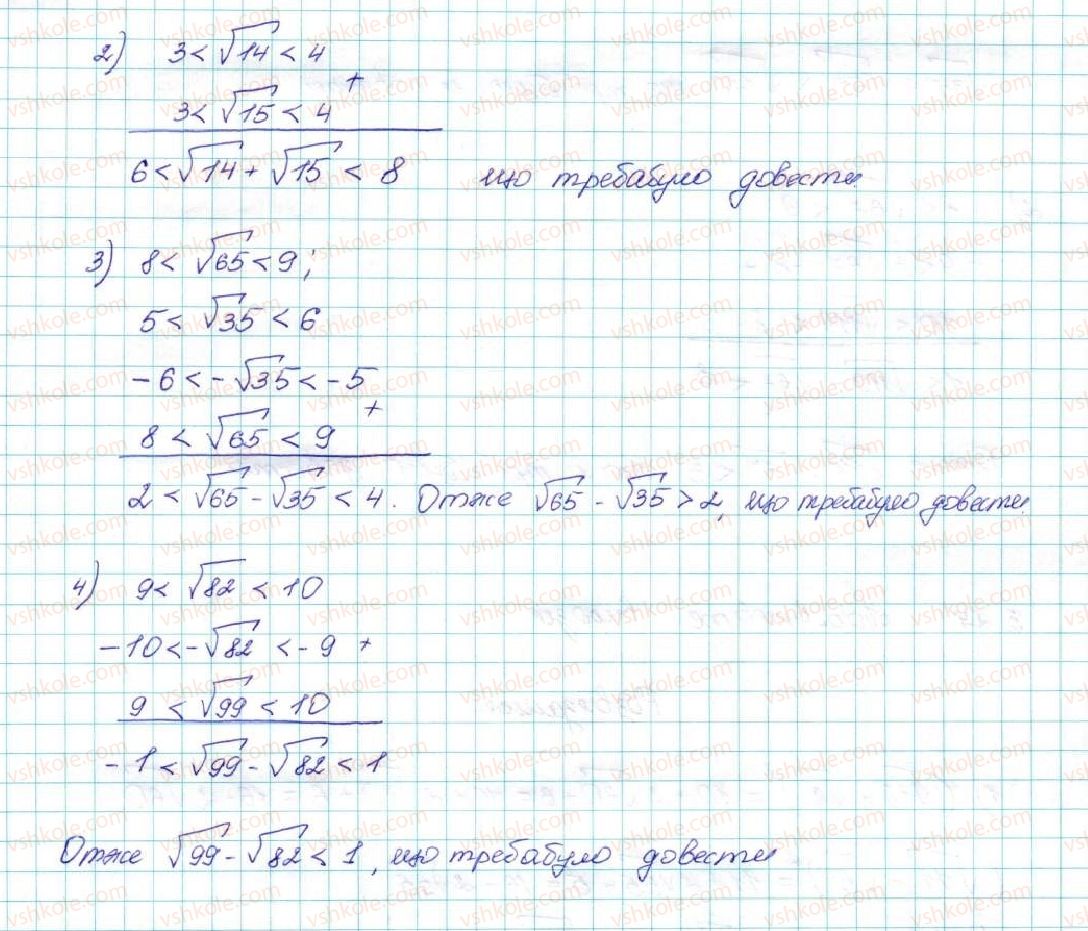 2) 3 < √14 < 4
+
3 < √15 < 4
6 < √14 + √15 < 8 що требабуло довести
3) 8 < √65 < 9;
5 < √35 < 6
-6 < -√35 < -5
+
8 < √65 < 9
2 < √65 - √35 < 4. Отже √65 - √35 > 2, що требабуло довести.
4) 9 < √82 < 10
-10 < -√82 < -9 +
9 < √99 < 10
-1 < √99 - √82 < 1
Отже √99 - √82 < 1, що требабуло довести